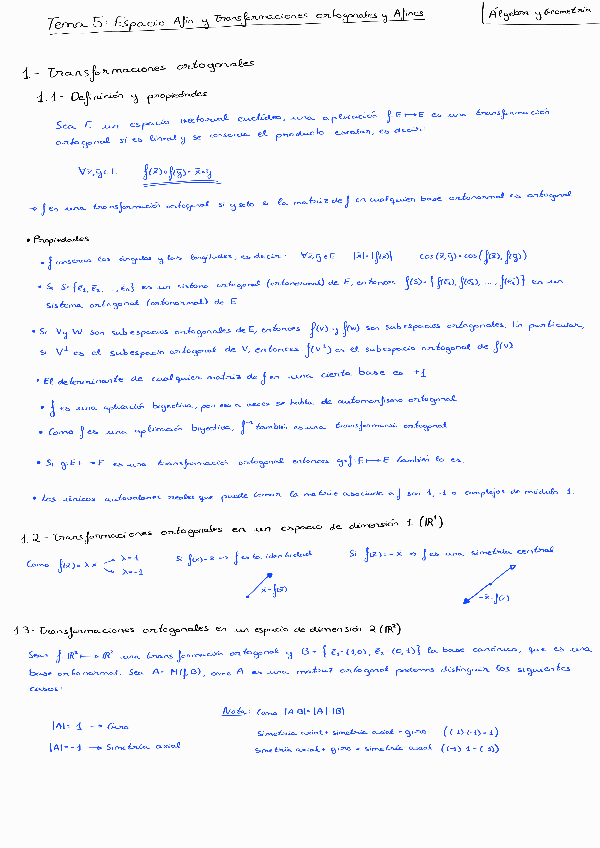 Tema 5: Espacio Afín y Transformaciones ortogonales y Afines
Álgebra y Geometría
1.- Transformaciones ortogonales
1.1- Definición y propiedades
Sea E un espacio vectorial euclídeo, una aplicación f: E→E es una transformación
ortogonal si es lineal y se conserva el producto escalar, es decir:
∀x̄,ȳ∈E f(x̄)∘f(ȳ)=x̄∘ȳ
→ f es una transformación ortogonal si y solo si la matriz de f en cualquier base ortonormal es ortogonal
• Propiedades
• f conserva los ángulos y las longitudes, es decir: ∀x̄,ȳ∈E |x̄|=|f(x̄)| cos(x̄,ȳ)=cos(f(x̄),f(ȳ))
• Si S={ē1, ē2, ..., ēn} es un sistema ortogonal (ortonormal) de E, entonces f(S)={f(ē1), f(ē2), ..., f(ēn)} es un
sistema ortogonal (ortonormal) de E
• Si V y W son subespacios ortogonales de E, entonces f(V) y f(W) son subespacios ortogonales. En particular,
si V⊥ es el subespacio ortogonal de V, entonces f(V⊥) es el subespacio ortogonal de f(V)
• El determinante de cualquier matriz de f en una cierta base es ±1
• f es una aplicación biyectiva, por eso a veces se habla de automorfismo ortogonal
• Como f es una aplicación biyectiva, f⁻¹ también es una transformación ortogonal
• Si g: E→E es una transformación ortogonal entonces g∘f: E→E también lo es.
• Los únicos autovalores reales que puede tener la matriz asociada a f son 1, -1 o complejos de módulo 1.
1.2- Transformaciones ortogonales en un espacio de dimensión 1 (ℝ¹)
Como f(x̄)=λx̄ λ=1 λ=-1 Si f(x̄)=x̄ → f es la identidad Si f(x̄)=-x̄ → f es una simetría central
x̄=f(x̄) -x̄=f(x̄)
1.3- Transformaciones ortogonales en un espacio de dimensión 2 (ℝ²)
Sea f: ℝ²→ℝ² una transformación ortogonal y B={ē1=(1,0), ē2=(0,1)} la base canónica, que es una
base ortonormal. Sea A=M(f,B), como A es una matriz ortogonal podemos distinguir los siguientes
casos:
Nota: Como |AB|=|A|·|B|
|A|=1 → Giro simetría axial + simetría axial = giro ((-1)·(-1)=1)
|A|=-1 → Simetría axial simetría axial + giro = simetría axial ((-1)·1=(-1))